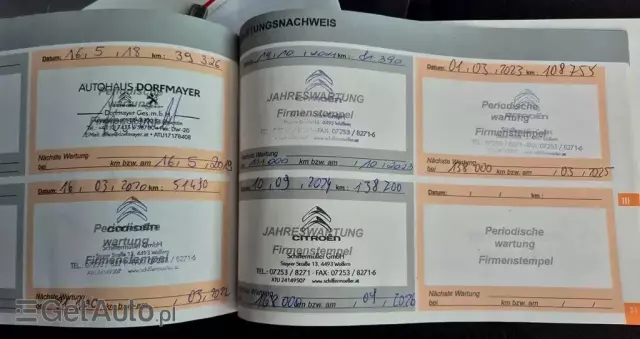 WARTUNGSNACHWEIS
Datum: 16, 5, 18 km: 39 326
AUTOHAUS DORFMAYER
Periodische
wartung
Firmenstempel
Dorfmayer Ges.m.b.H.
ATU17176408
Nächste Wartung
bei km bzw. am 16, 5, 2019
Datum: 16, 03, 2020 km: 51430
CITROËN
Periodische
wartung
Firmenstempel
Schiffermüller GmbH
Steyrer Straße 13, 4493 Wolfern
TEL.: 07253 / 8271
www.schiffermueller.at
Nächste Wartung
km bzw. am 03, 2022
Datum: km: 81 390
CITROËN
JAHRESWARTUNG
Firmenstempel
FAX: 07253 / 8271-6
Nächste Wartung
bei km bzw. am / 10 / 2023
Datum: 10, 09, 2024 km: 138 200
JAHRESWARTUNG
CITROËN
Firmenstempel
Schiffermüller GmbH
Steyrer Straße 13, 4493 Wolfern
TEL.: 07253 / 8271 · FAX: 07253 / 8271-6
ATU 24149507 www.schiffermueller.at
Nächste Wartung
bei 168 000 km bzw. am 09, 2026
Datum: 01, 03, 2023 km: 108 755
Periodische
wartung
Firmenstempel
Nächste Wartung
bei 138 000 km bzw. am / 03 / 2025
Datum: / / km:
Periodische
wartung
Firmenstempel
Nächste Wartung
bei km bzw. am / /
III
33
GetAuto.pl